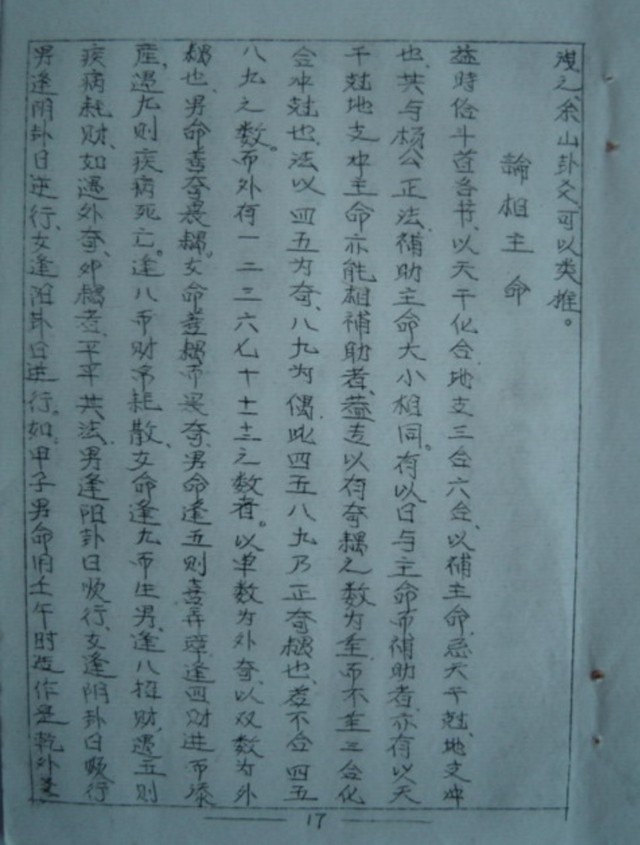 洩之余山卦爻可以类推。
論相主命
益時俗斗首各书、以天干化合、地支三合六合、以補主命、忌天干尅、地支冲
也、其与杨公正法、補助主命大小相同。有以日与主命而補助者、亦有以天
干尅地支冲主命亦能相補助者、益专以有奇耦之数为主、而不主三合化
合冲尅也、法以四五为奇、八九为偶、此四五八九乃正奇耦也、若不合四五
八九之数。而外有一二三六七十十一十二之数者。以单数为外奇、以双数为外
耦也、男命喜奇畏耦。女命喜耦而畏奇、男命逢五则喜弄璋、逢四财进而添
産、遇九则疾病死亡。逢八而财帛耗散、女命逢九而生男、逢八招财、遇五则
疾病耗财、如遇外奇、外耦者、平平、其法、男逢阳卦日顺行、女逢阴卦日顺行
男逢阴卦日逆行、女逢阳卦日逆行。如。甲子男命用壬午时造作是乾外
17